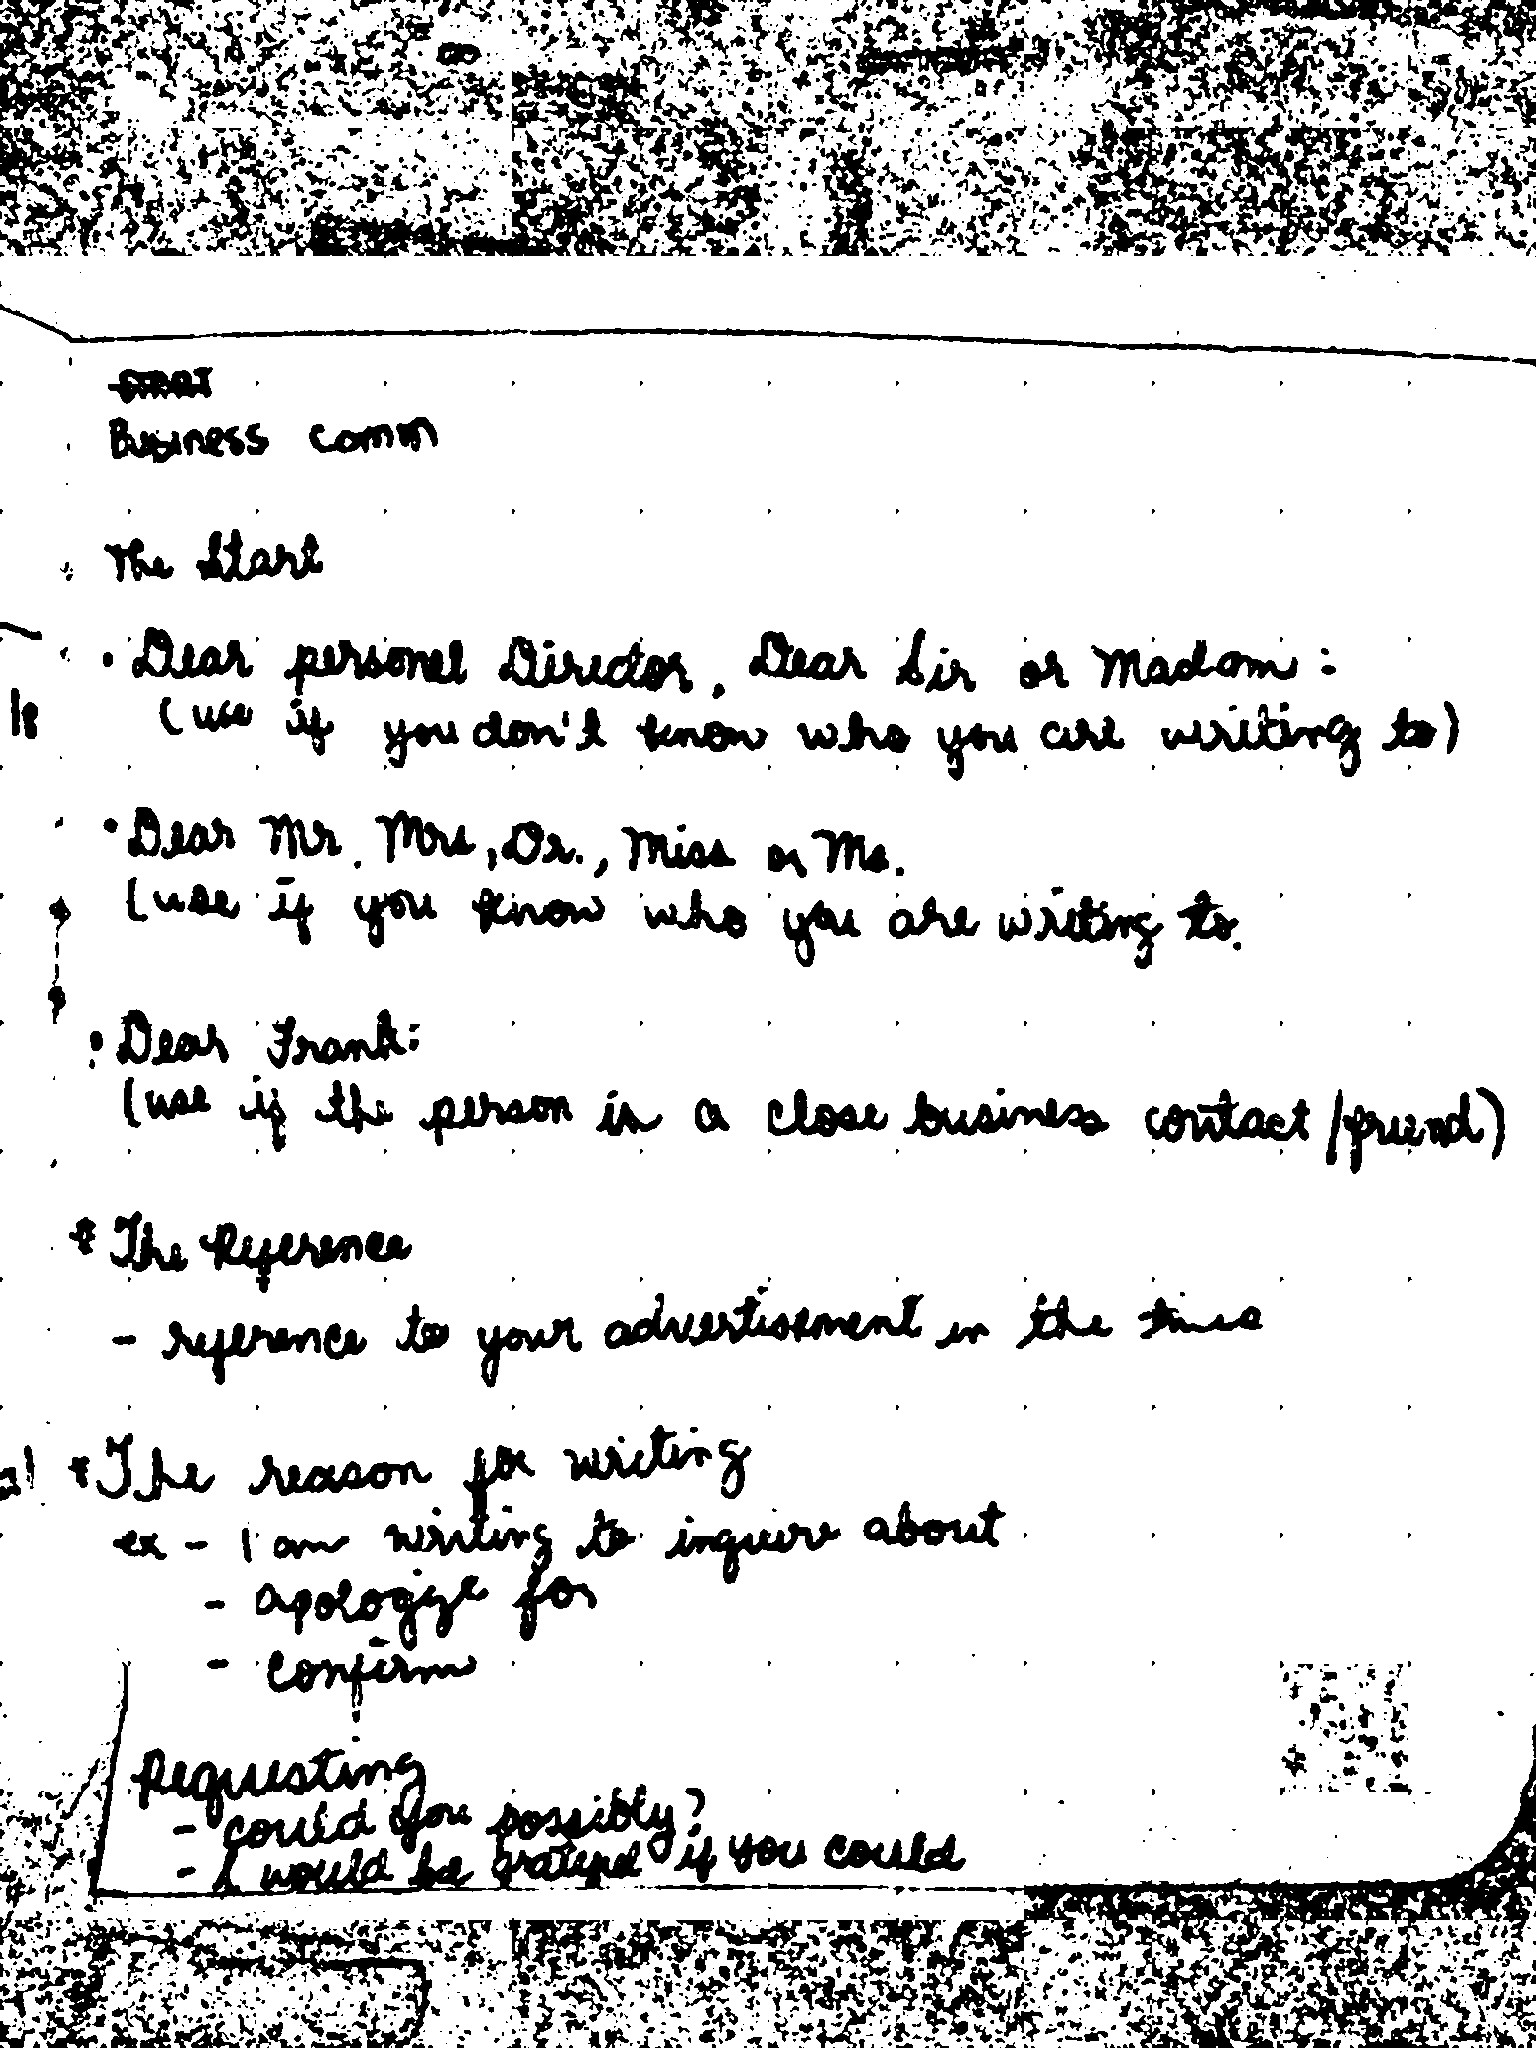 Business comm
The Start
• Dear personel Director, Dear Sir or Madam:
(use if you don't know who you are writing to)
• Dear Mr. Mrs, Dr., Miss or Ms.
(use if you know who you are writing to.
• Dear Frank:
(use if the person is a close business contact/friend)
* The Reference
- reference to your advertisement in the times
* The reason for writing
ex - I am writing to inquire about
- apologize for
- confirm
Requesting
- could you possibly?
- I would be grateful if you could